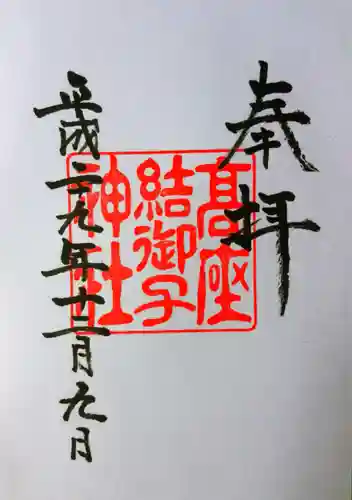 奉拝
髙座
結御子
神社
平成二九年十二月九日